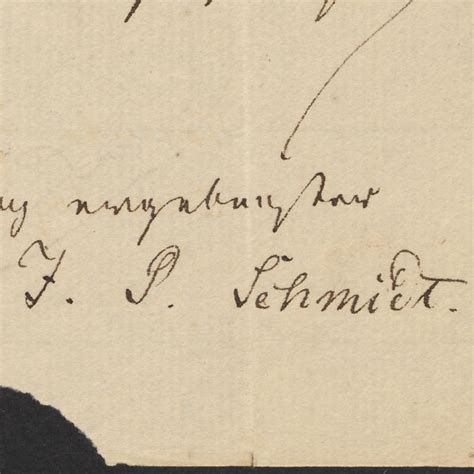 ergebenster
J. P. Schmidt.